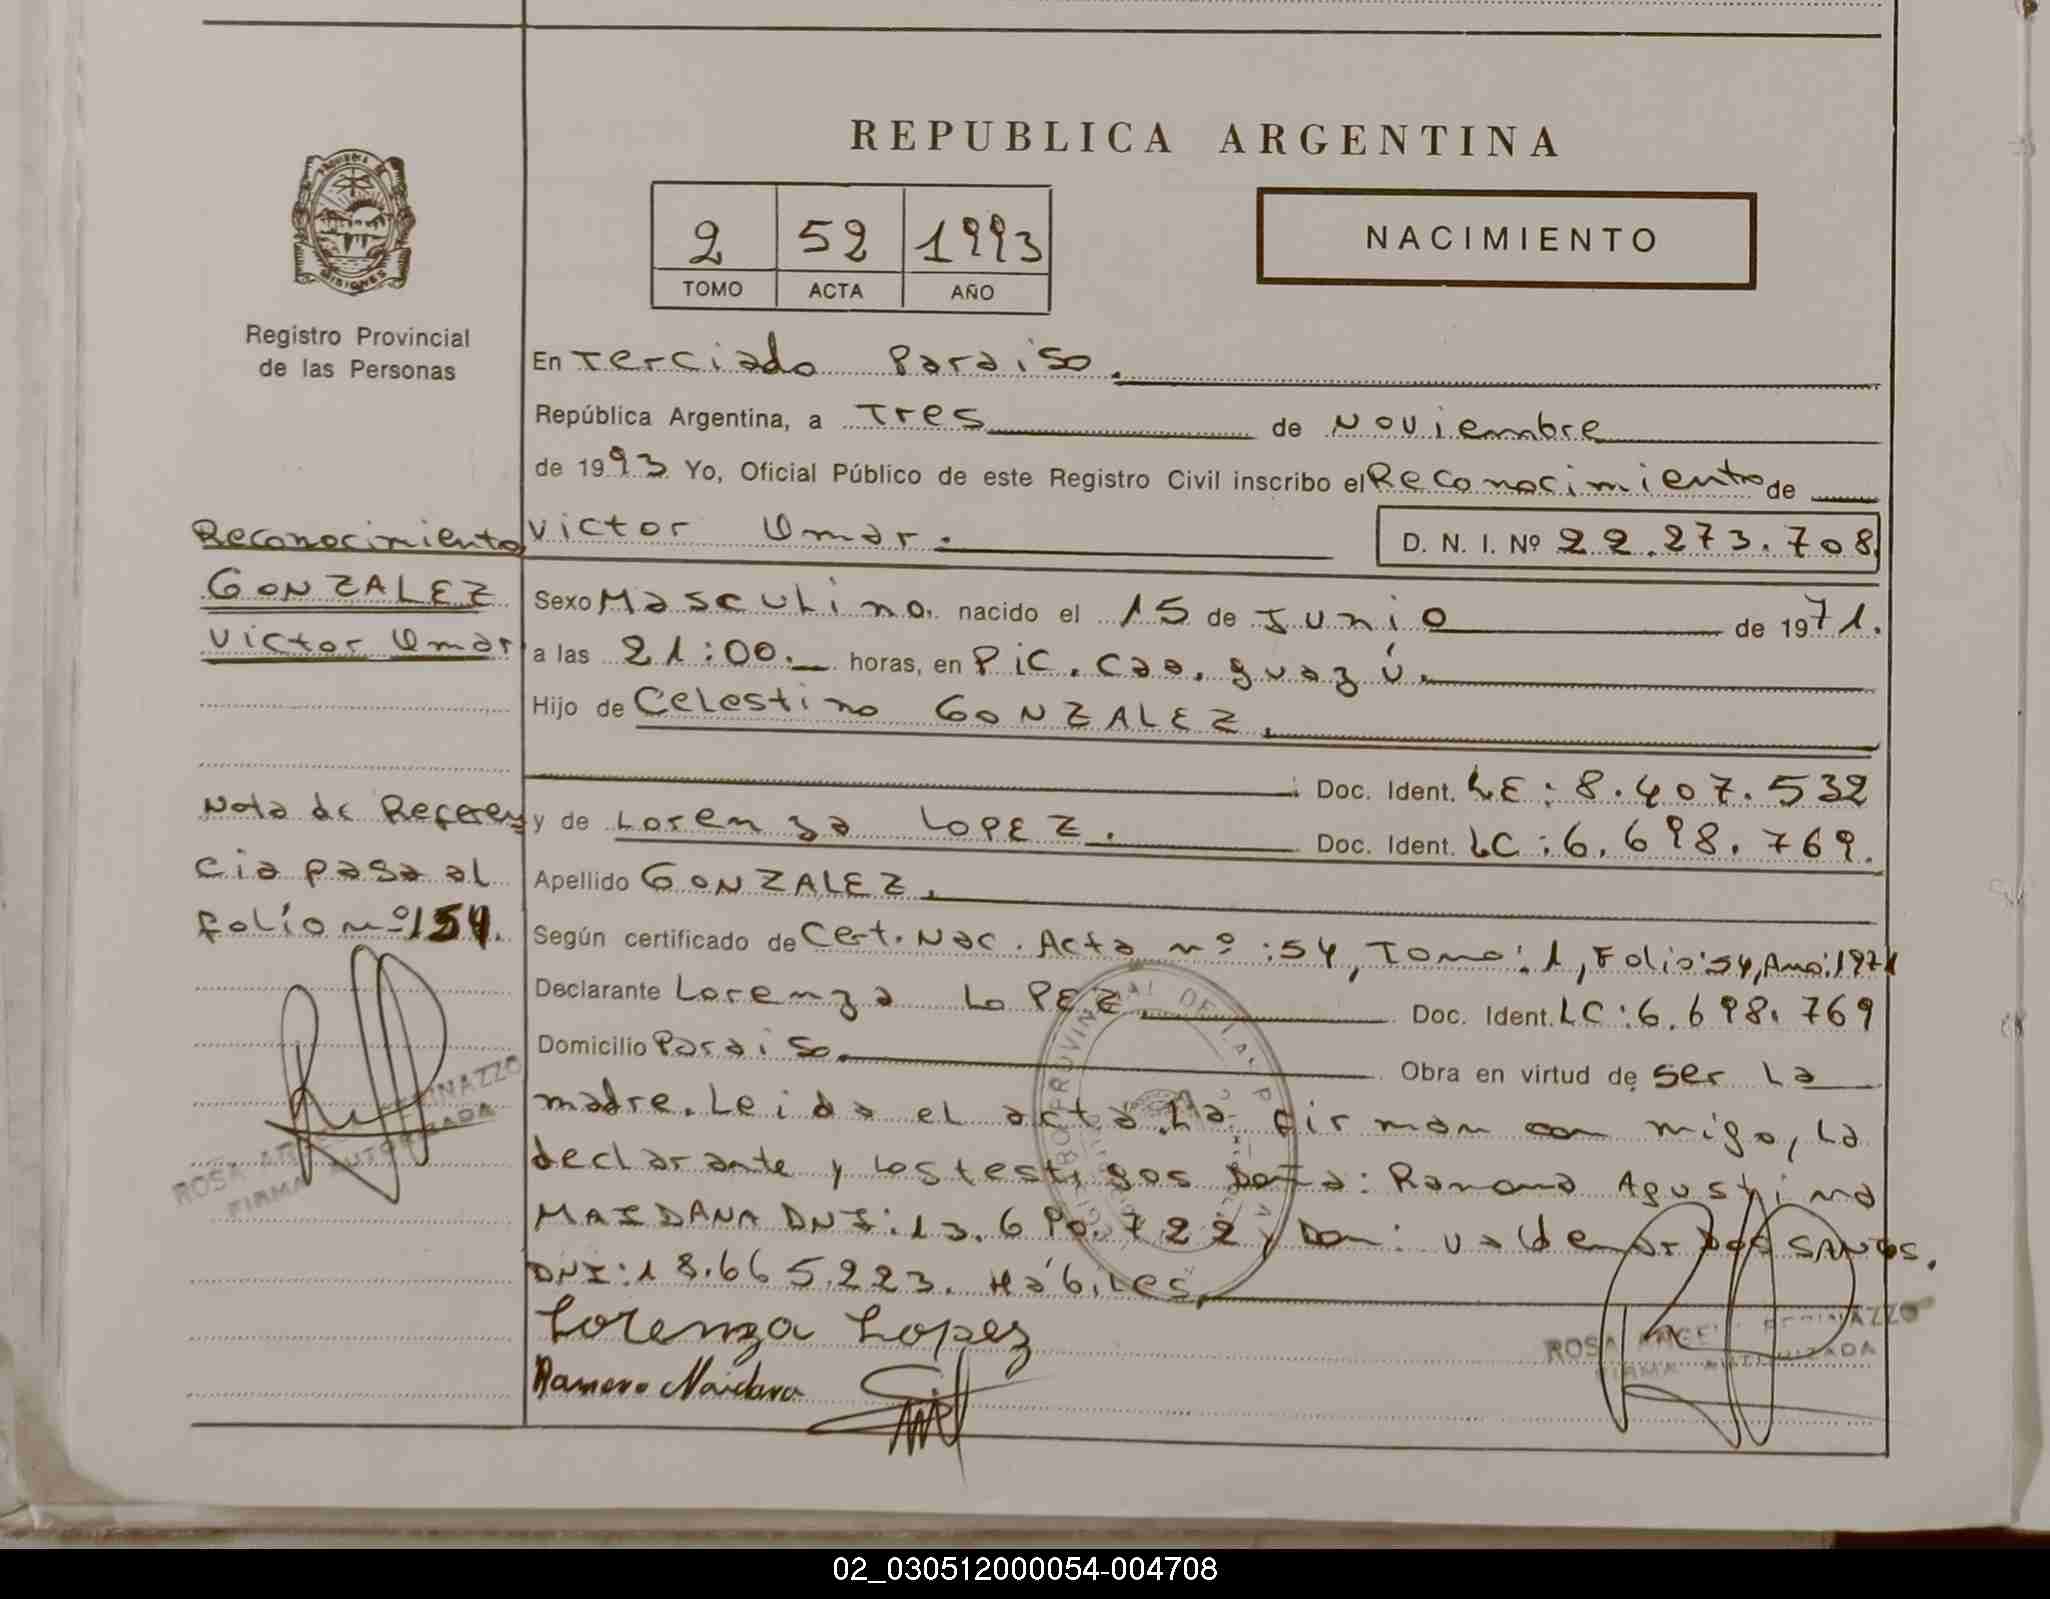 REPUBLICA ARGENTINA
2 52 1993
TOMO ACTA AÑO
NACIMIENTO
MISIONES
Registro Provincial
de las Personas
En Terciado Paraiso.
República Argentina, a Tres de Noviembre
de 1993 Yo, Oficial Público de este Registro Civil inscribo el Reconocimiento de
Victor Omar. D. N. I. Nº 22.273.708
Reconocimiento
GONZALEZ
Victor Omar
Sexo Masculino. nacido el 15 de Junio de 1971.
a las 21:00. horas, en Pic. Caa. guazú.
Hijo de Celestino GONZALEZ.
Doc. Ident. LE: 8.407.532
y de Lorenza LOPEZ. Doc. Ident. LC: 6.698.769.
Nota de Referen
cia pasa al
folio nº 154.
Apellido GONZALEZ.
Según certificado de Cert. Nac. Acta nº: 54, Tomo: 1, Folio: 54, Año: 1971
Declarante Lorenza LOPEZ. Doc. Ident. LC: 6.698.769
Domicilio Paraiso. Obra en virtud de ser la
madre. Leida el acta la firman con migo, la
declarante y los testigos Doña: Ramona Agustina
MAIDANA DNI: 13.690.722, Don: Valdemar DOS SANTOS.
DNI: 18.665.223. Hábiles.
Lorenza Lopez
Ramona Maidana
ROSA
FIRMA AUTORIZADA
ROSA
FIRMA AUTORIZADA
02_030512000054-004708